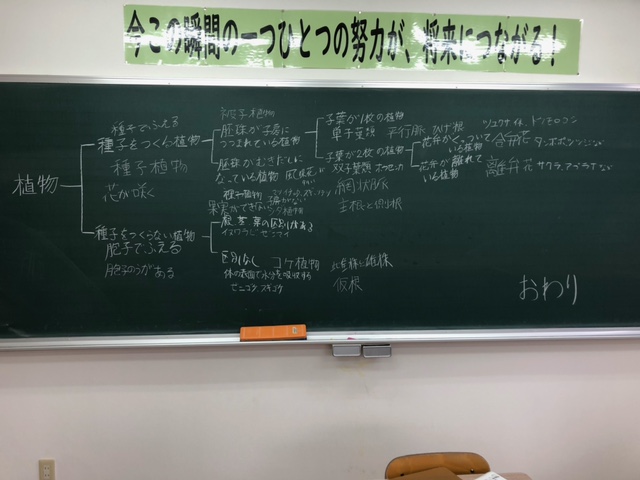 今この瞬間の一つひとつの努力が、将来につながる!
植物
種子でふえる
種子をつくる植物
種子植物
花が咲く
種子をつくらない植物
胞子でふえる
胞子のうがある
被子植物
胚珠が子房に
つつまれている植物
胚珠がむきだしに
なっている植物
裸子植物
果実ができない
根 茎 葉の区別がある
イヌワラビ ゼンマイ
区別なし コケ植物
体の表面で水分を吸収する
ゼニゴケ スギゴケ
雌株と雄株
仮根
子葉が1枚の植物
単子葉類 平行脈 ひげ根
ツユクサ イネ トウモロコシ
子葉が2枚の植物
双子葉類
網状脈
主根と側根
花弁がくっついて
いる植物
合弁花
タンポポ ツツジ
花弁が離れて
いる植物
離弁花 サクラ アブラナ など
おわり